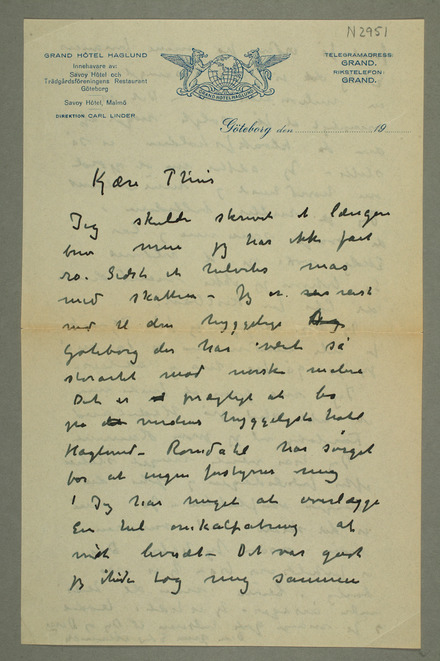 N 2951
GRAND HÔTEL HAGLUND
Innehavare av:
Savoy Hôtel och
Trädgårdsföreningens Restaurant
Göteborg
Savoy Hôtel, Malmö
DIREKTION CARL LINDER
GRAND HÔTEL HAGLUND
TELEGRAMADRESS:
GRAND.
RIKSTELEFON:
GRAND.
Göteborg den 19
Kjære Thiis
Jeg skulde skrevet et længere
brev men jeg har ikke fåt
ro. Sidst et helvetes mas
med skatten – Jeg er reist
ned til den hyggelige
Göteborg der har vært så
storartet mod norske malere
Det er prægtigt at bo
på verdens hyggeligste hotel
Haglund – Romdahl har sørget
for at ingen forstyrrer mig
! Jeg har meget at overlægge
En hel omkalfatring af
mit – Det var godt
jeg itide tog mig sammen